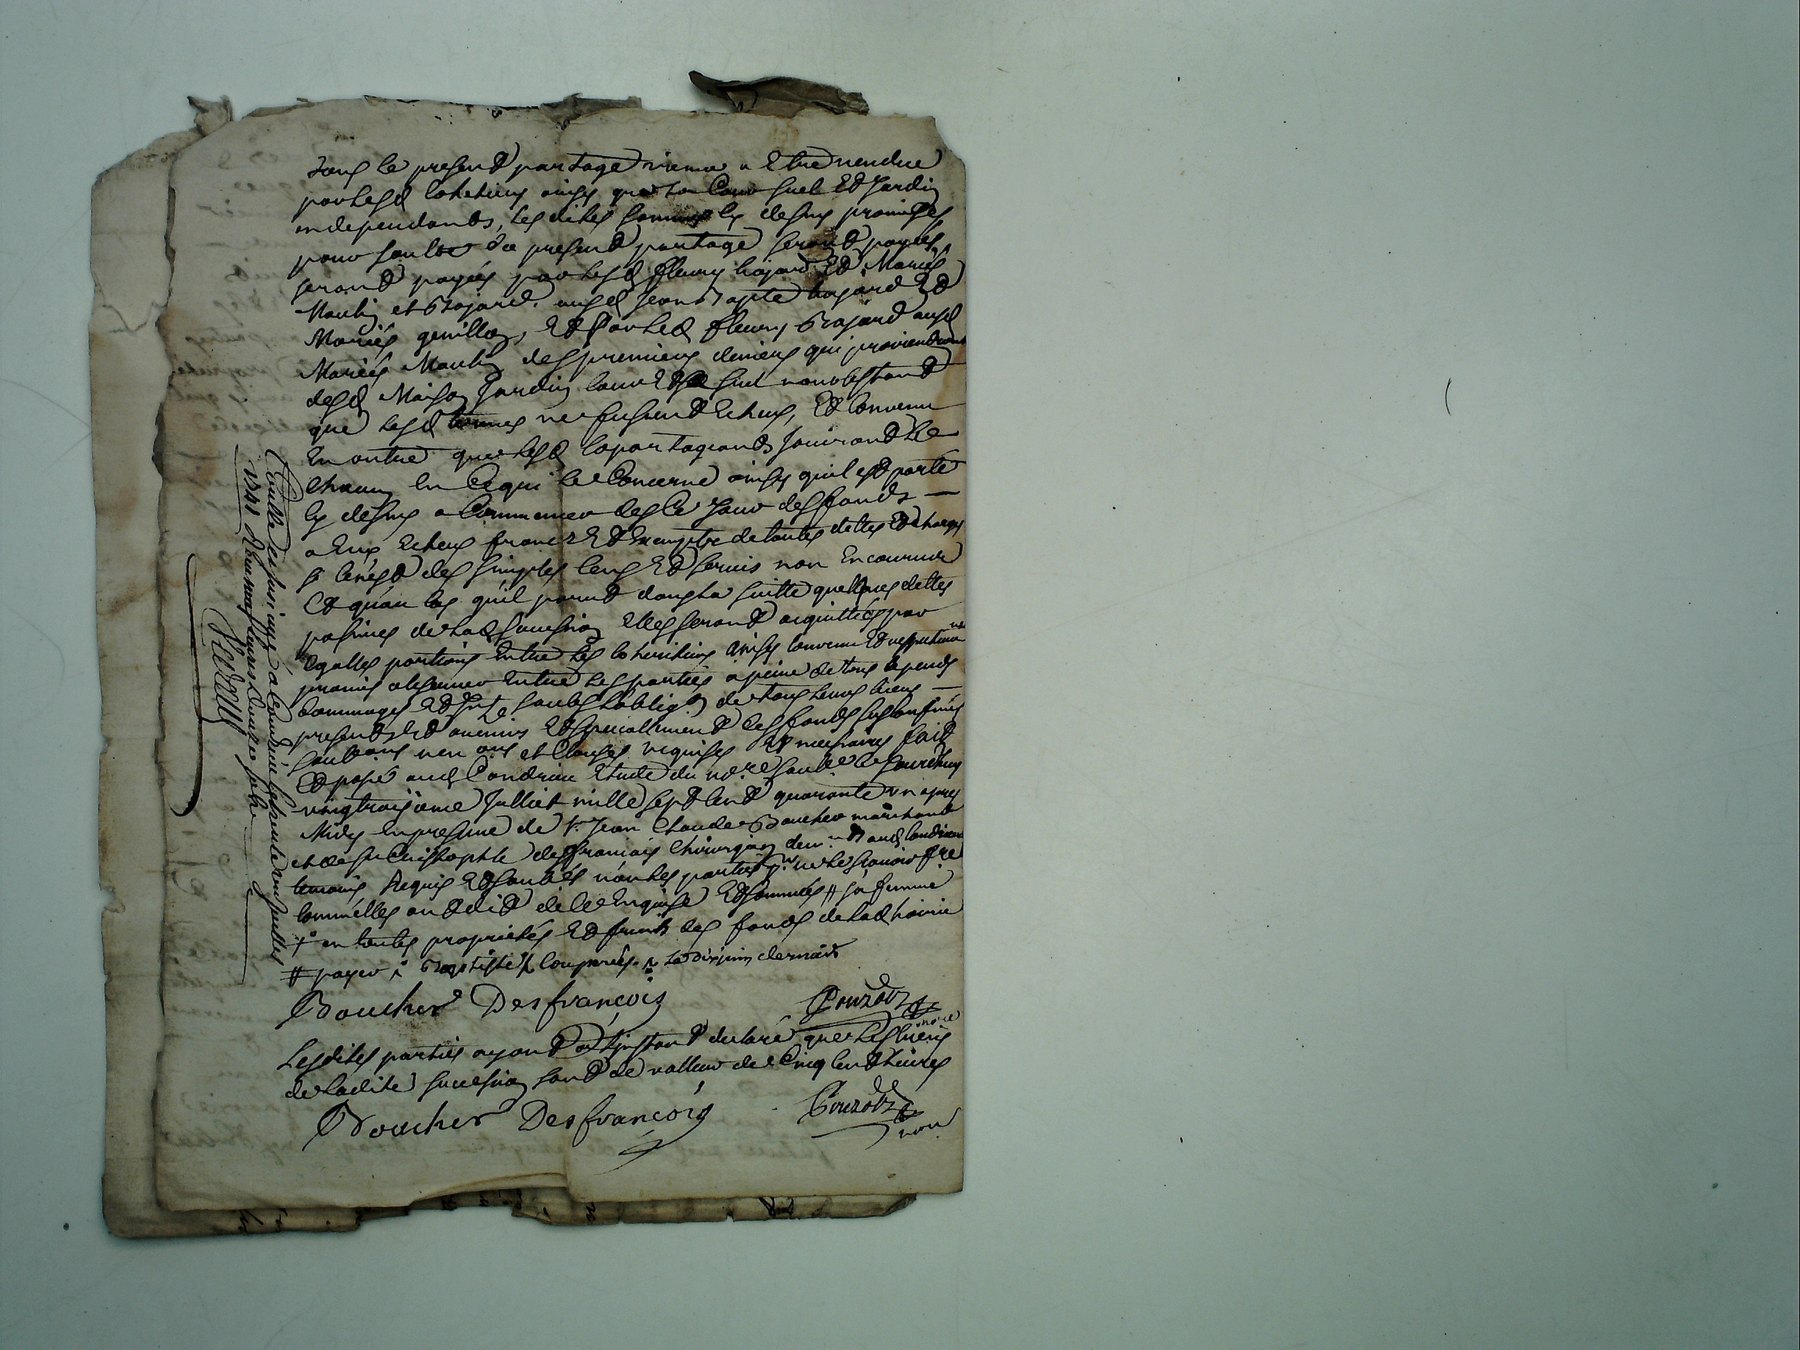 dans le present partage vienne a Etre vendue
par lesd coheritiers ainsy que la Cour suel Et Jardin
independants, lesdites sommes cy dessus promises
pour soulte du present partage seront payées
seront payées par lesd fleury bajard Et Mariés
Moulin et Bajard, ausd Jean Bapte bajard Et
Mariés genillon, Et Par led fleury Bajard ausd
Mariés Moulin des premiers deniers qui proviendront
desd Maison Jardin Cour Et suel nonobstant
que lesd termes ne fussent Echeus, Et Convenu
En outre que lesd Copartageants Jouiront Le
Chacun En Ce qui le Concerne ainsy quil est porté
Cy dessus a Commencer des Ce Jour des fonds
a Eux Echeus francs Et Exempts de toutes dettes Et charges
si Ce n'est des simples Cens Et servis non Encourus
Et qu'au Cas qu'il parut dans la suitte quelques dettes
passives de lad succession Elles seront acquittées par
Egalles portions Entre les coheritiers ainsy Convenu Et respectivement
promis observer Entre les parties a peine de tous depends
dommages Et sous l'oblig.on de tous leurs biens
presents Et avenirs Et specialement des fonds sus confinés
soubmis ren ons et Clauses requises Et necessaires fait
Et passé aud Condrieu Etude du no.re soubs.é Ce Jourdhuy
vingt troisieme Julliet mille sept Cent quarante un apres
Midy En presence de sr. Jean Claude Boucher marchand
et de sr Christophle desfrancois Chirurgien dem.nt aud Condrieu
temoins Requis Et soubsés non les parties p.r ne le scavoir fre
Comme Elles ont dit de Ce Enquises Et sommées # sa femme
+ en toutes proprietés Et fruits des fonds de lad hoirie
# payer Baptiste
Boucher Desfrançois Pouzols
no.re
Lesdites parties ayant a l'instant declaré que les biens
de ladite succession sont de valleur de Cinq Cent Livres
Boucher Desfrançois Pouzols
no.re
Controllé Condrieu
1741